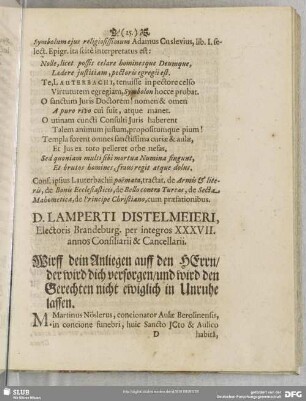 (25.)
Symbolum ejus religiosissimum Adamus Cuslevius, lib. 1. se-
lect. Epigr. ita scite interpretatus est:
Nolle, licet possis celare hominesque Deumque,
Ludere justitiam, pectoris egregii est.
Te, LAUTERBACHI, tenuisse in pectore celso
Virtutem egregiam, Symbolon hocce probat.
O sanctum Juris Doctorem! nomen & omen
A puro rivo cui fuit, atque manet.
O utinam cuncti Consulti Juris haberent
Talem animum justum, propositumque pium!
Templa forent omnes sanctissima curiæ & aulæ,
Et Jus ex toto pelleret orbe nefas,
Sed quoniam multi sibi mortua Numina fingunt,
Et brutos homines, fraus regit atque dolus.
Conf. ipsius Lauterbachii poëmata, tractat. de Armis & lite-
ris, de Bonis Ecclesiasticis, de Bello contra Turcas, de Secta
Mahometica, de Principe Christiano, cum præfationibus.
D. LAMPERTI DISTELMEIERI,
Electoris Brandeburg. per integros XXXVII.
annos Consiliarii & Cancellarii.
Wirff dein Anliegen auff den HErrn/
der wird dich versorgen/ und wird den
Gerechten nicht ewiglich in Unruhe
lassen.
M. Martinus Nöslerus, concionator Aulæ Berolinensis,
in concione funebri, huic Sancto JCto & Aulico
D habitâ,
SLUB
DFG